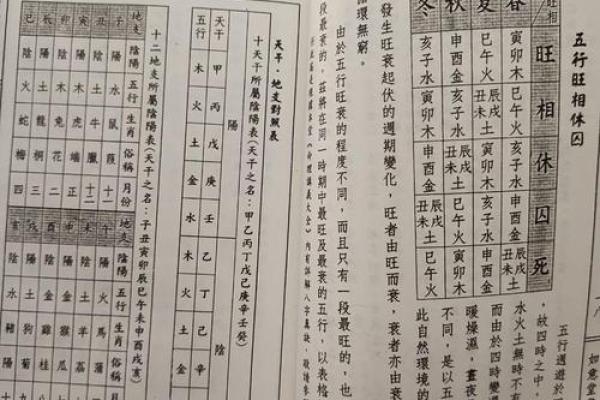 五行旺相休囚
五行週遊於
，故四時之中，
水火土無時不有
而由於四時變
暖燥濕，晝夜
不同，是以五
此自然環境的
如意堂
旺相 旺 相 休 囚 死
春 寅卯木 巳午火 亥子水 申酉金 辰戌丑未土
夏 巳午火 辰戌丑未土 寅卯木 亥子水 申酉金
秋 申酉金 亥子水 辰戌丑未土 巳午火 寅卯木
冬 亥子水 寅卯木 申酉金 辰戌丑未土 巳午火
發生旺衰起伏的週期變化，旺者由旺而衰，衰者亦由衰
循環無窮。
由於五行旺衰的程度不同，而且只有一段最旺的，也
段最衰的。茲將在同一時期中最旺及最衰的五行，以表格
天干、地支對照表
十天干所屬陰陽表(天干之名：甲乙丙丁戊己庚辛壬癸)
陽 陰
天干 甲 丙 戊 庚 壬 乙 丁 己 辛
五行 木 火 土 金 水 木 火 土 金
十二地支所屬陰陽表(天干之名：子丑寅卯辰巳午未申酉戌亥)
地支 陰陽 五行 生肖 俗稱 月份 地支 陰陽 五行 生肖 俗稱
子 陽 水 鼠 葭 十一 午 陽 火 馬 蒲
丑 陰 土 牛 臘 十二 未 陰 土 羊 荔
寅 陽 木 虎 端 正 申 陽 金 猴 瓜
卯 陰 木 兔 花 二 酉 陰 金 雞 桂
辰 陽 土 龍 桐 三 戌 陽 土 狗 菊
巳 陰 火 蛇 梅 四 亥 陰 水 豬